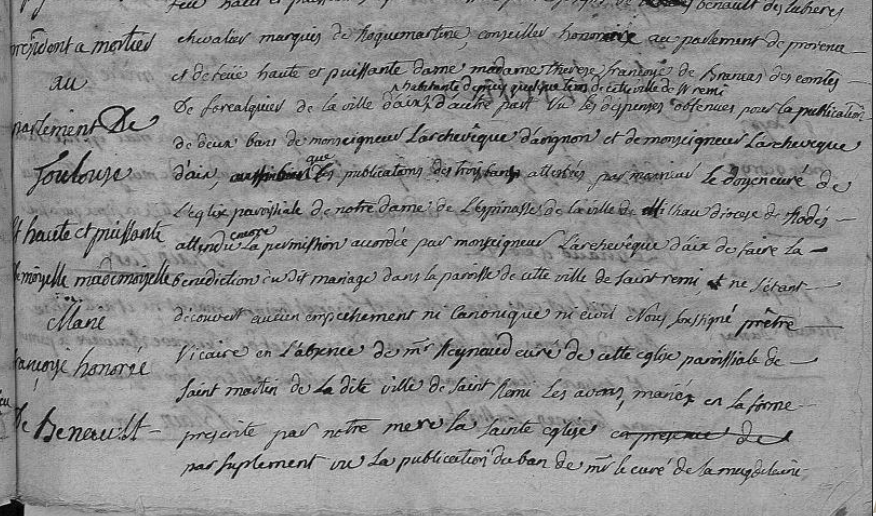 présidont a mortier
au
parlement De
Toulouse
Et haute et puissante
demoiselle mademoiselle
Marie
françoise honorée
De Benault
feüe haut et puissan
benault de lubieres
chevalier marquis de Roquemartine, conseiller honoraire au parlement de provence
et de feüe haute et puissante dame madame therese françoise de Brancas des comtes
habitante depuis quelque tems de cette ville de St remi
De forcalquier de la ville d'aix, d'autre part vu les dispenses obtenues pour la publication
de deux bans de monseigneur L'archevêque d'avignon et de monseigneur L'archeveque
d'aix, que les publications des trois bans attestées par monsieur le doyen curé de
L'eglise paroissiale de notre dame de L'espinasse de la ville de Milhau diocese de Rodés
attendu encore La permission accordée par monseigneur L'archevêque d'aix de faire la
benediction du dit mariage dans la paroisse de cette ville de saint remi, et ne s'étant
découvert aucun empechement ni Canonique ni civil Nous soussigné prêtre
Vicaire en L'absence de mr Reynaud curé de cette eglise paroissiale de
saint martin de La dite ville de saint Remi Les avons mariés en la forme
prescrite par notre mere la sainte eglise en presence de
par suplement vu La publication du ban de mr le curé de la magdelaine